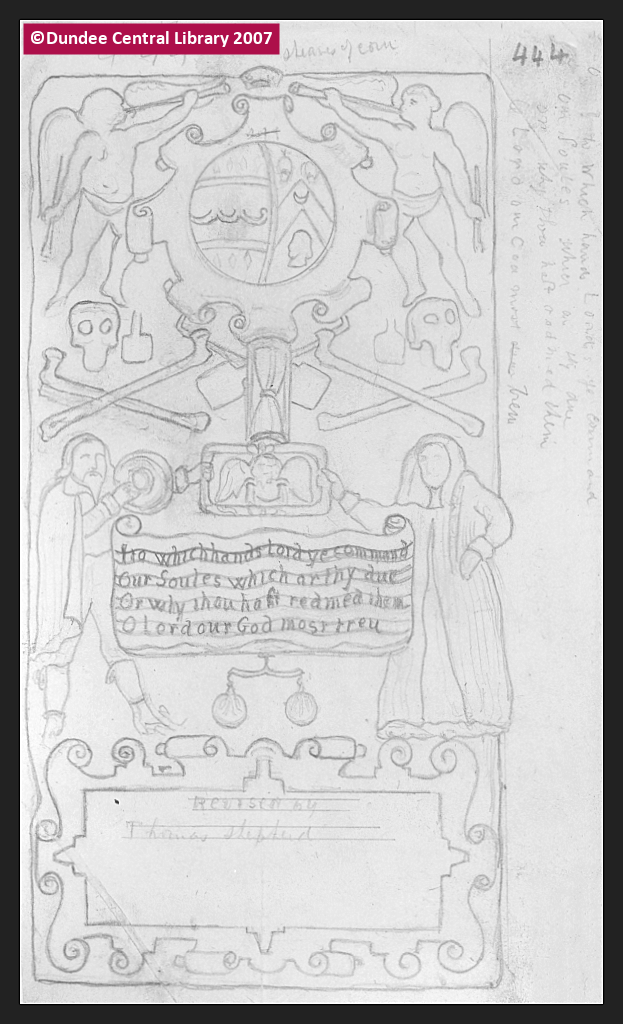 ©Dundee Central Library 2007
sheaves of corn
444
Ito which hands Lord ye command
Our Soules which ar thy due
Or why thou hast redmed them
O Lord our God most treu
Revised by
Thomas Shepherd
which hands Lord ye command
our Soules which ar thy due
or why thou hast redmed them
O Lord our God most treu